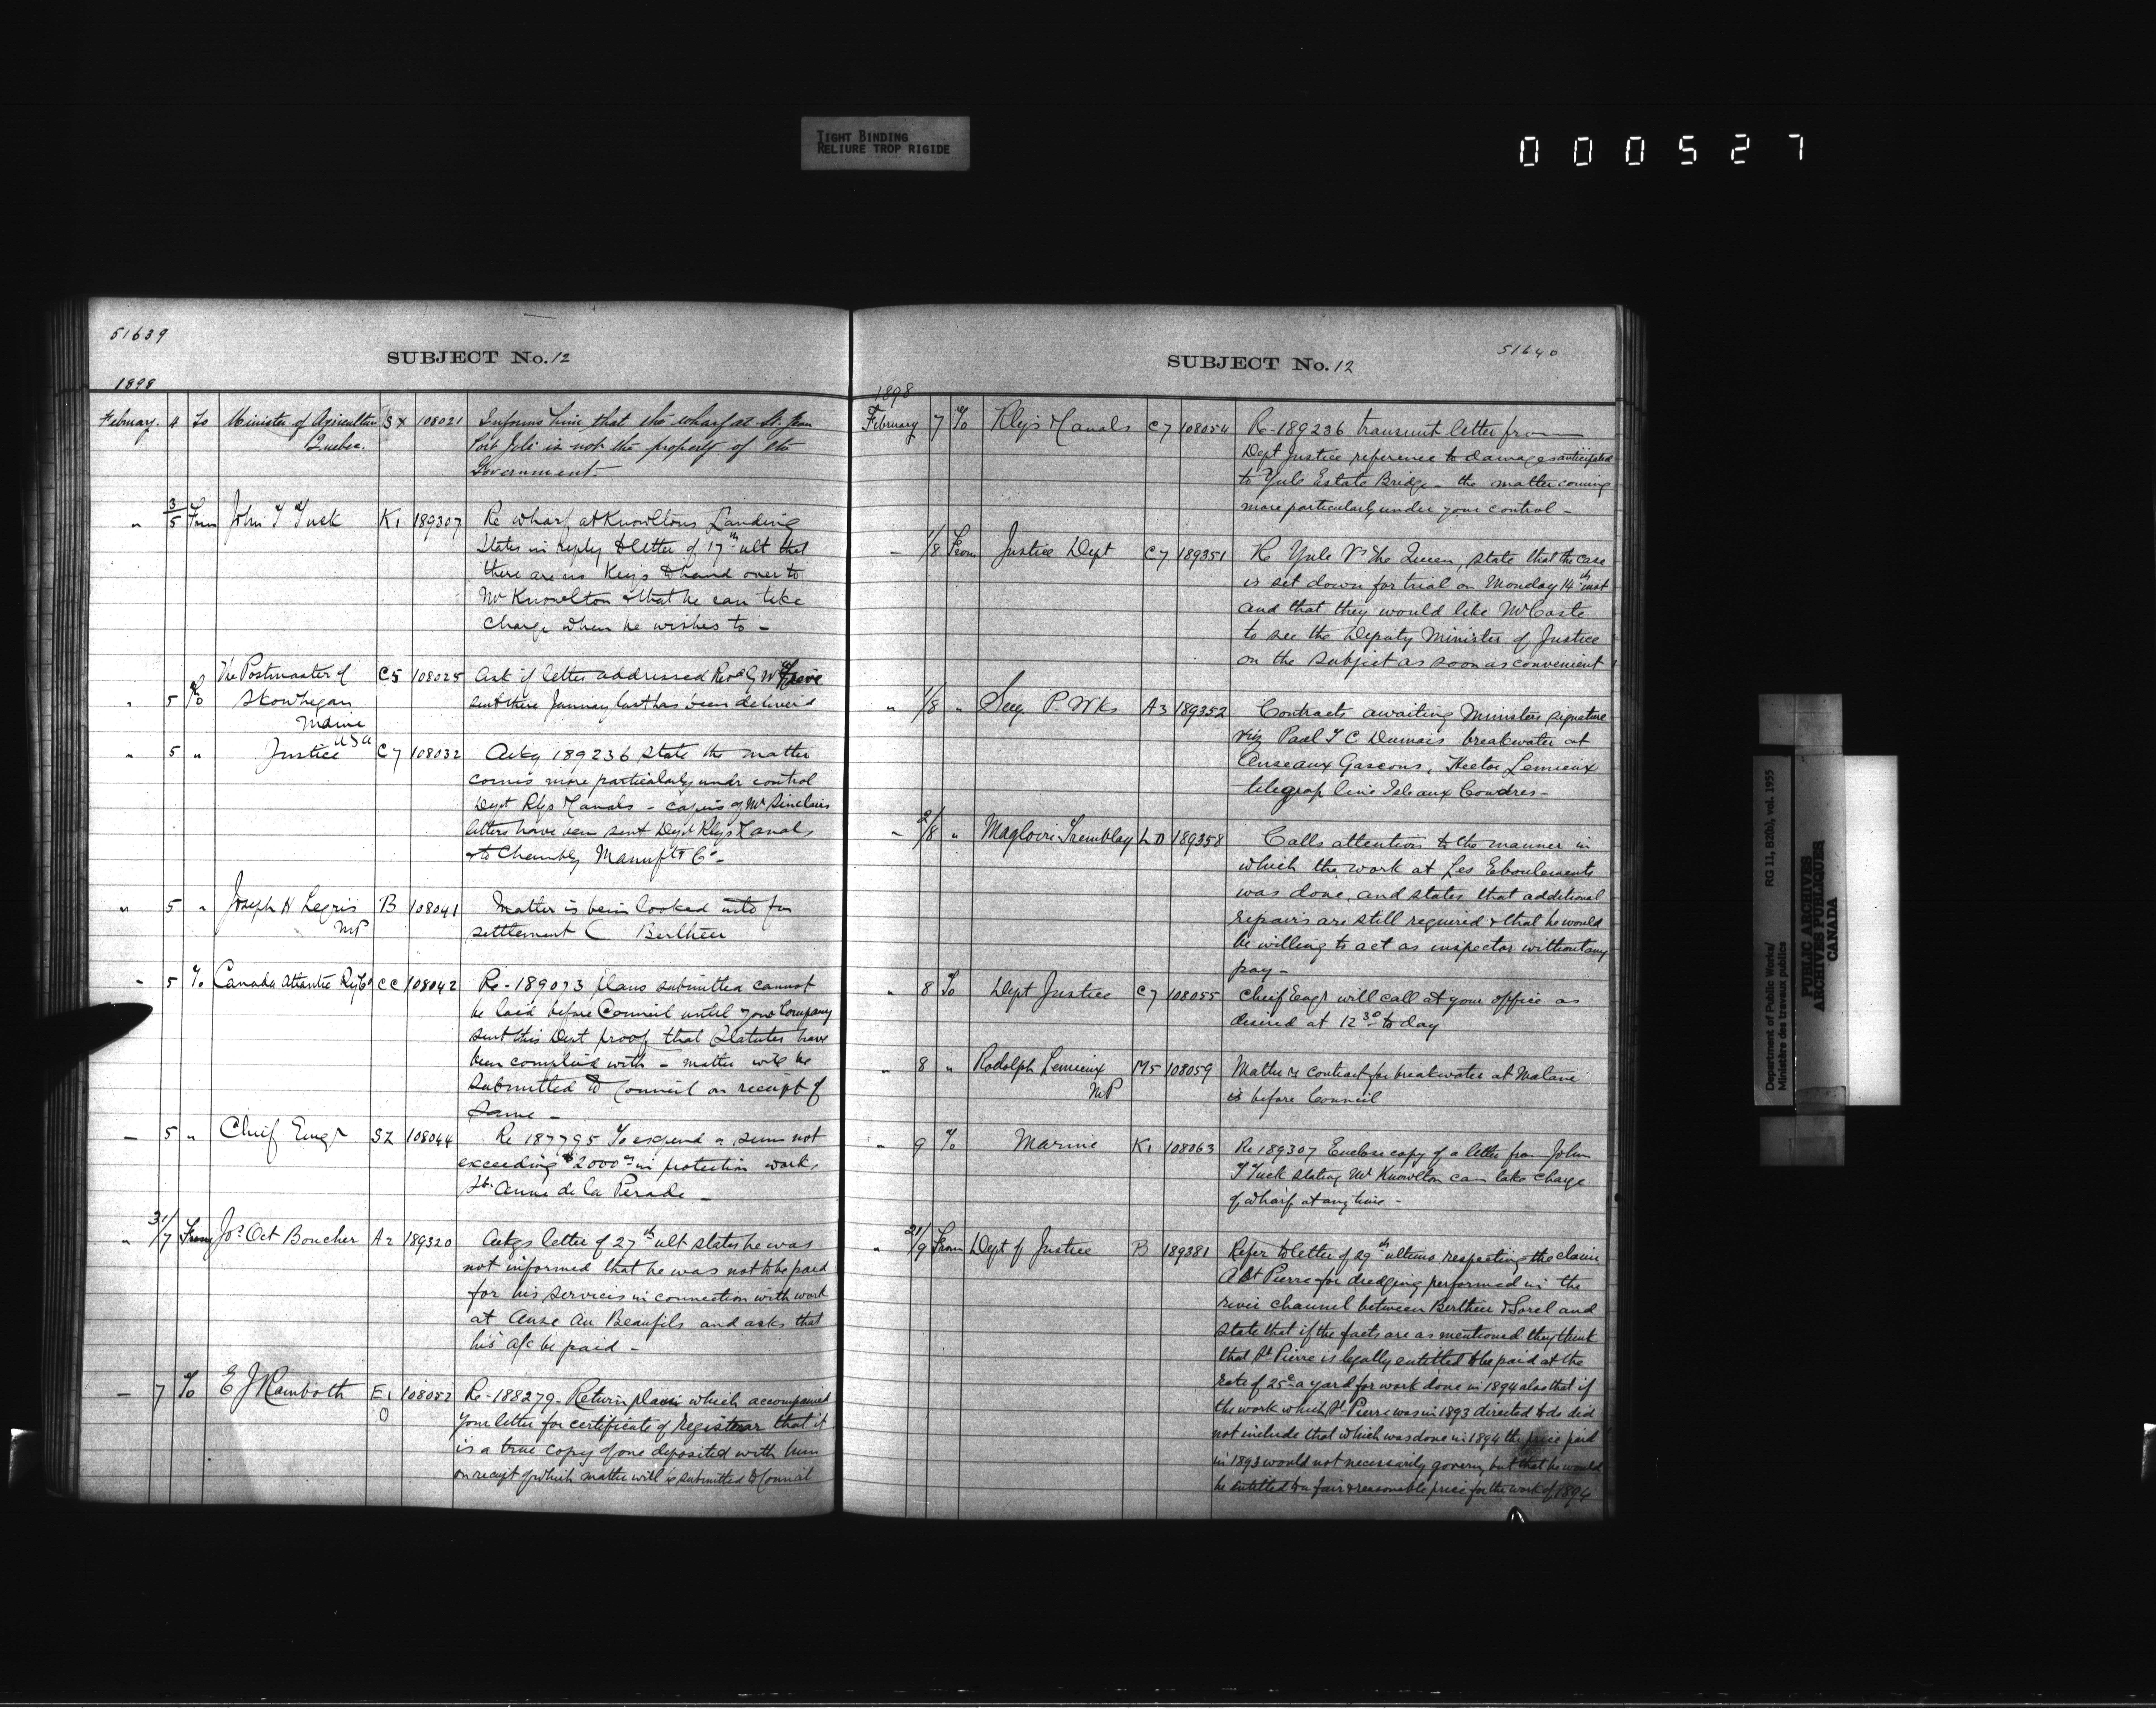 TIGHT BINDING
RELIURE TROP RIGIDE
000527
51639
SUBJECT No. 12
1898
February. 4 To Minister of Agriculture SX 108021 Informs him that the wharf at St. Jean
Quebec. Port Joli is not the property of the
Government.
" 3/5 From John T Tuck K1 189307 Re wharf at Knowltons Landing
States in reply to letter of 17th ult that
there are no Keys to hand over to
Mr Knowlton & that he can take
charge when he wishes to -
The Postmaster of C5 108025 Ask if letter addressed Revd G W
" 5 To Skowhegan sent there January last has been deliver'd
Maine
USA
" 5 " Justice C7 108032 Ackg 189236 state the matter
comes more particularly under control
Dept Rlys & Canals - copies of Mr Sinclairs
letters have been sent Dept Rlys & Canals
& to Chambly Manufg Co -
" 5 " Joseph H Legris B 108041 Matter is being looked into for
MP settlement Berthier
" 5 To Canada Atlantic Ry Co CC 108042 Re - 189073 plans submitted cannot
be laid before Council until your Company
sent this Dept proof that Statutes have
been complied with - matter will be
submitted to Council on receipt of
same -
- 5 " Chief Engr SZ 108044 Re 187795 To expend a sum not
exceeding $2000 in protection works
Ste Anne de la Perade -
" 31/7 From Jos Oct Boucher A2 189320 Ackgs letter of 27th ult states he was
not informed that he was not to be paid
for his services in connection with work
at Anse Au Beaufils and asks that
his a/c be paid -
- 7 To E J Rainboth E1 108052 Re - 188279 - Return plans which accompanied
O your letter for certificate of Registrar that it
is a true copy of one deposited with him
on receipt of which matter will be submitted to Council
51640
SUBJECT No. 12
1898
February 7 To Rlys & Canals C7 108054 Re - 189236 transmit letter from
Dept Justice reference to damages anticipated
to Yule Estate Bridge - the matter coming
more particularly under your control -
- 1/8 From Justice Dept C7 189351 Re Yule Vs The Queen, state that the case
is set down for trial on Monday 14th inst
and that they would like Mr Coste
to see the Deputy Minister of Justice
on the subject as soon as convenient
" 1/8 " Secy P. Wks A3 189352 Contracts awaiting Ministers signature
viz Paul T C Dumais breakwater at
Anse aux Gascons, Hector Lemieux
telegrap line Isle aux Coudres -
" 2/8 " Magloire Tremblay LD 189358 Calls attention to the manner in
which the work at Les Eboulements
was done, and states that additional
repairs are still required & that he would
be willing to act as inspector without any
pay -
" 8 To Dept Justice C7 108055 Chief Engr will call at your office as
desired at 12 30 to day
" 8 " Rodolph Lemieux M5 108059 Matter re contract for breakwater at Matane
MP is before Council
" 9 To Marine K1 108063 Re 189307 Enclose copy of a letter from John
T Tuck stating Mr Knowlton can take charge
of wharf at any time -
" 21/9 From Dept of Justice B 189381 Refer to letter of 29th ultimo respecting the claim
A St Pierre for dredging performed in the
river channel between Berthier & Sorel and
state that if the facts are as mentioned they think
that St Pierre is legally entitled to be paid at the
rate of 25c a yard for work done in 1894 also that if
the work which St Pierre was in 1893 directed to do did
not include that which was done in 1894 the price paid
in 1893 would not necessarily govern, but that he would
be entitled to a fair & reasonable price for the work of 1894
Department of Public Works/ RG 11, B2(b), vol. 1955
Ministère des travaux publics
PUBLIC ARCHIVES
ARCHIVES PUBLIQUES
CANADA